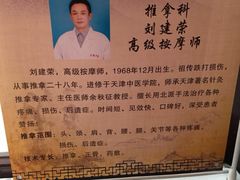 推拿科
刘建荣
高级按摩师
刘建荣，高级按摩师，1968年12月出生。祖传跌打损伤，
从事推拿二十八年。进修于天津中医学院，师承天津著名针灸
推拿专家、主任医师余秋征教授。擅长用北派手法治疗各种
疼痛、损伤、后遗症。时间短、见效快、口碑好，深受患者
赞扬。
推拿范围：头、颈、肩、背、腰、腿、关节等各种疼痛、
损伤、后遗症。
技术专长：推拿、正骨、药敷。